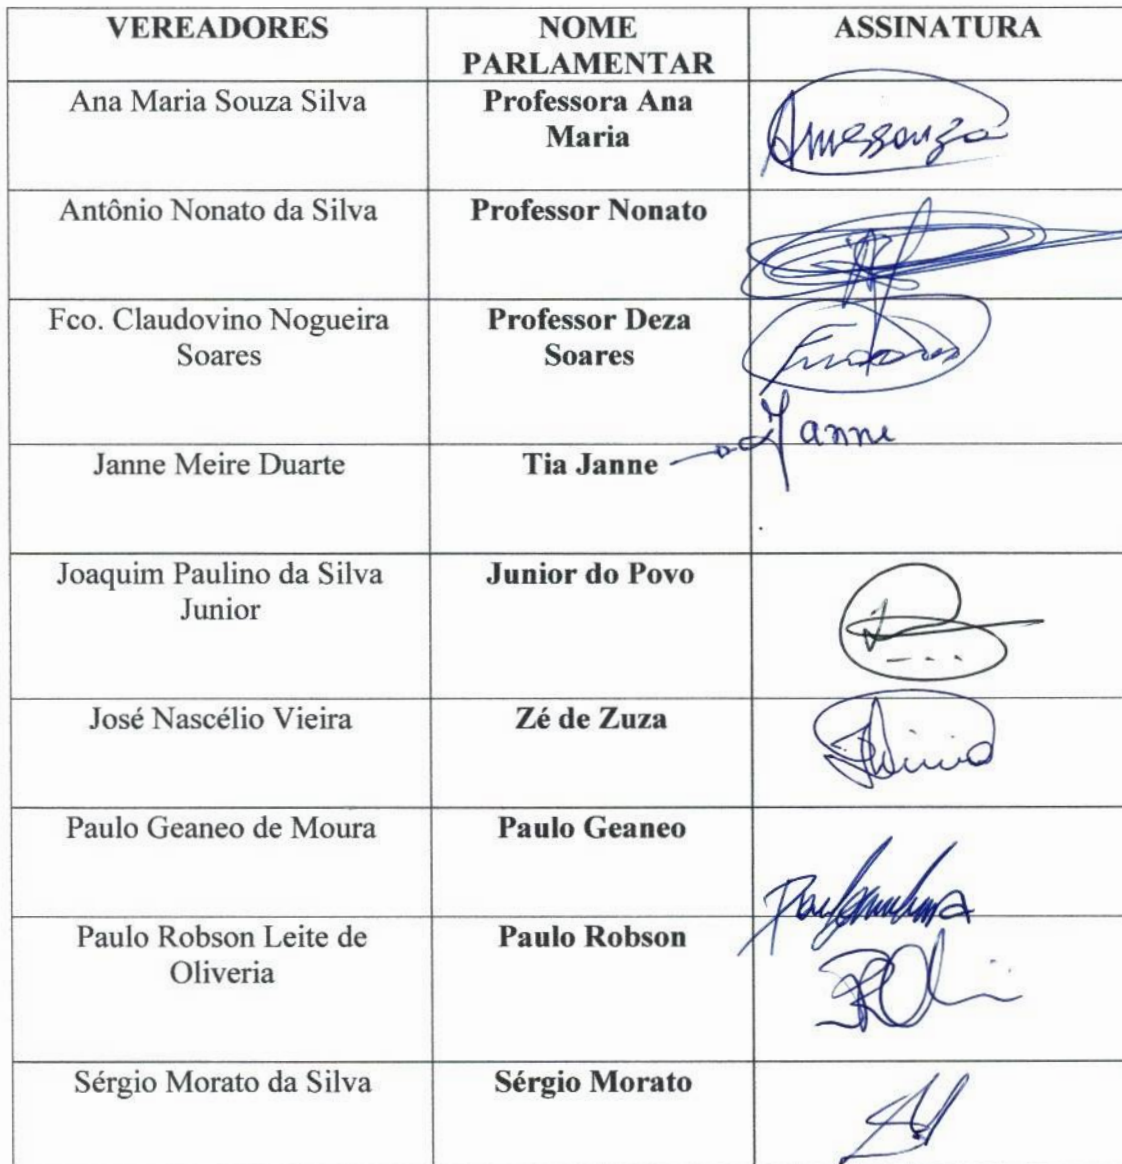 VEREADORES NOME PARLAMENTAR ASSINATURA
Ana Maria Souza Silva Professora Ana Maria
Antônio Nonato da Silva Professor Nonato
Fco. Claudovino Nogueira Soares Professor Deza Soares
Janne Meire Duarte Tia Janne Janne
Joaquim Paulino da Silva Junior Junior do Povo
José Nascélio Vieira Zé de Zuza
Paulo Geaneo de Moura Paulo Geaneo
Paulo Robson Leite de Oliveria Paulo Robson
Sérgio Morato da Silva Sérgio Morato